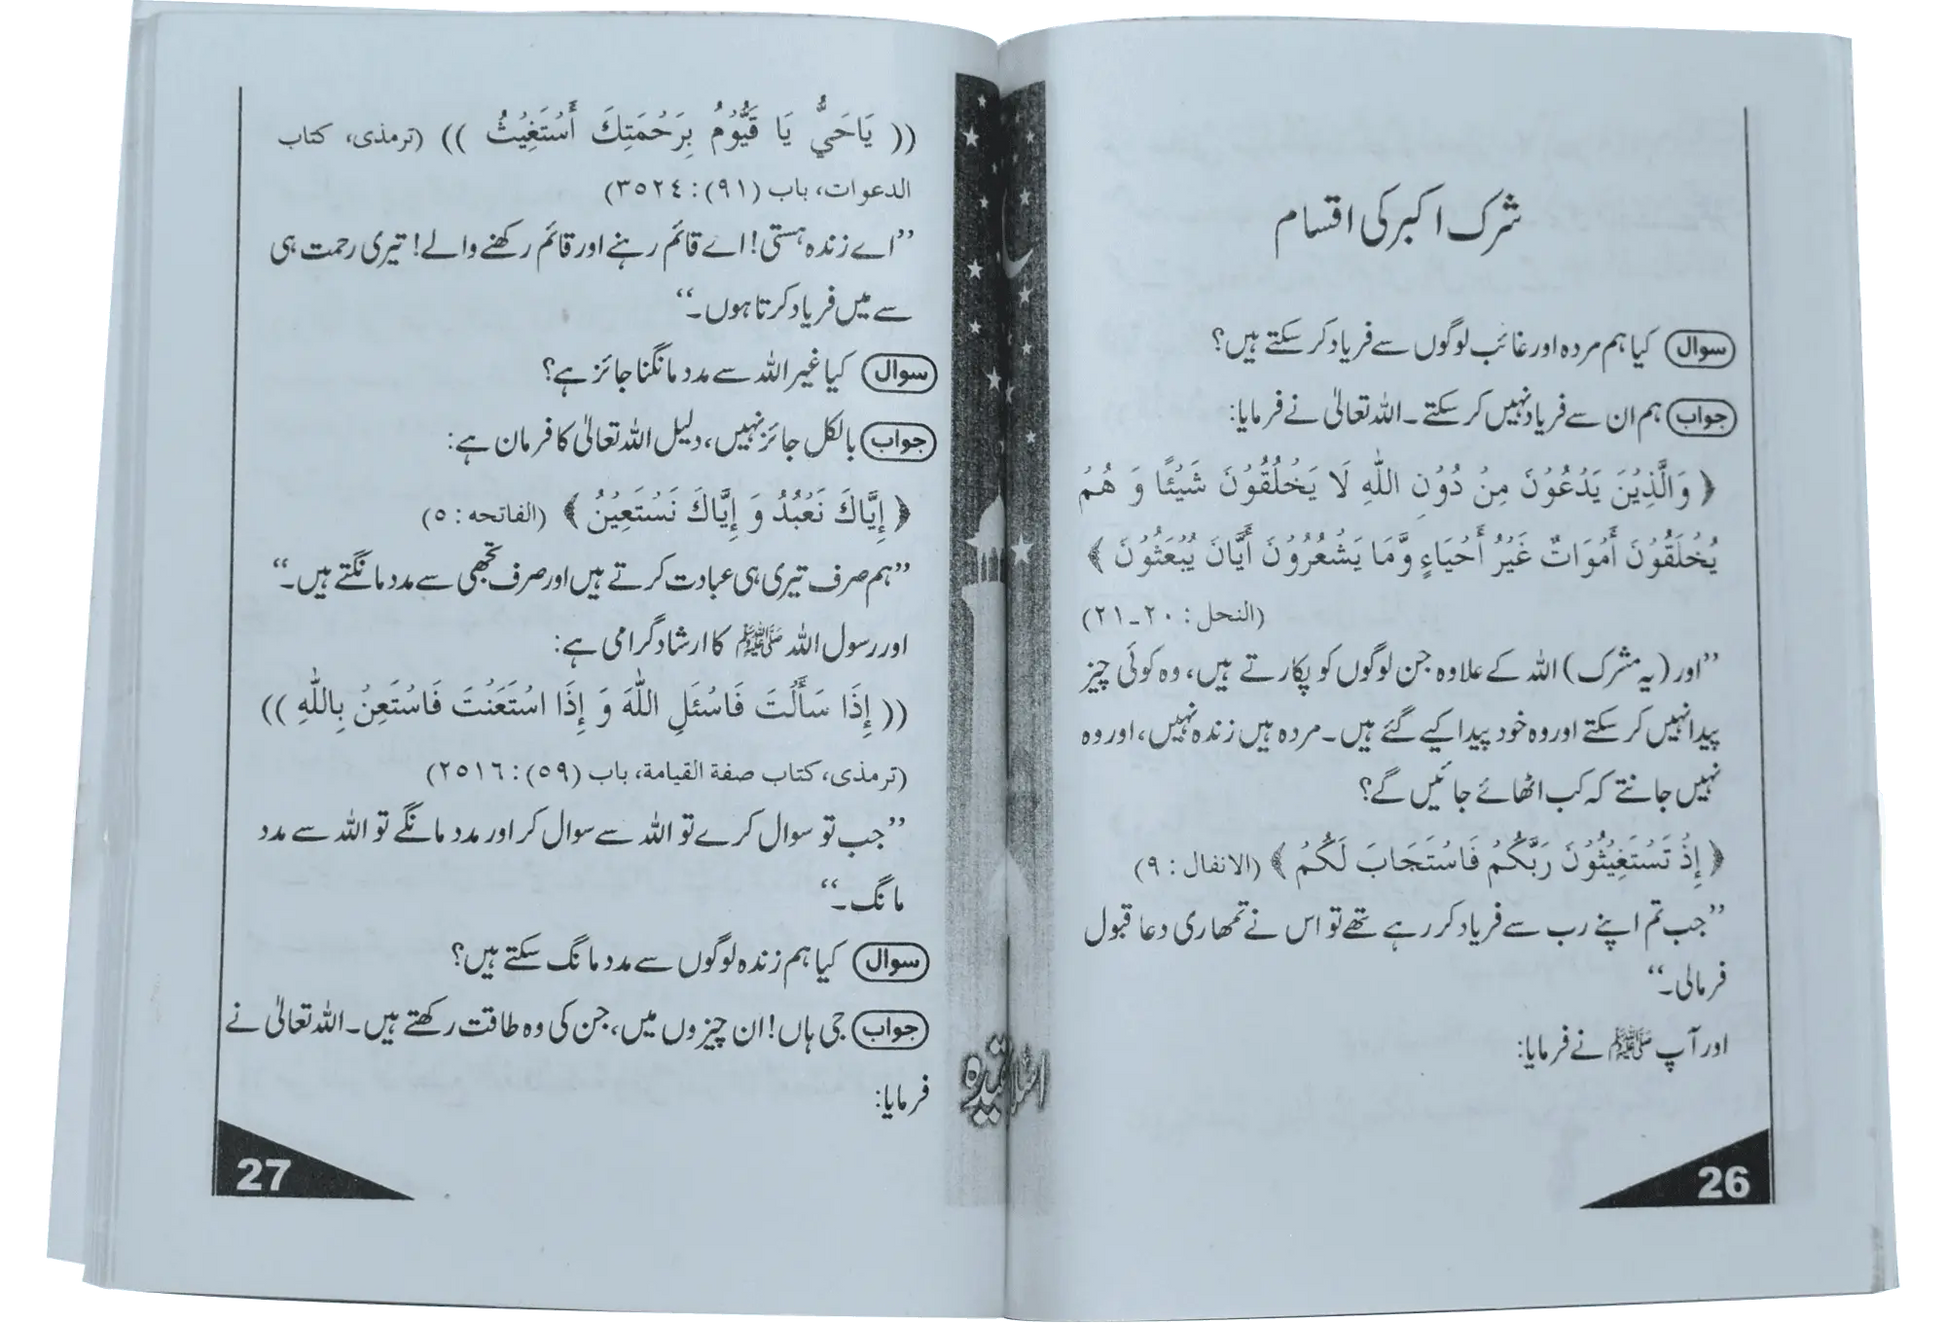 شرک اکبر کی اقسام
سوال کیا ہم مردہ اور غائب لوگوں سے فریاد کر سکتے ہیں؟
جواب ہم ان سے فریاد نہیں کر سکتے۔ اللہ تعالیٰ نے فرمایا:
﴿ وَالَّذِیْنَ یَدْعُوْنَ مِنْ دُوْنِ اللّٰهِ لَا یَخْلُقُوْنَ شَیْئًا وَ هُمْ
یُخْلَقُوْنَ أَمْوَاتٌ غَیْرُ أَحْیَاءٍ وَّمَا یَشْعُرُوْنَ أَیَّانَ یُبْعَثُوْنَ ﴾
(النحل : ٢٠ـ٢١)
’’اور (یہ مشرک) اللہ کے علاوہ جن لوگوں کو پکارتے ہیں، وہ کوئی چیز
پیدا نہیں کر سکتے اور وہ خود پیدا کیے گئے ہیں۔ مردہ ہیں زندہ نہیں، اور وہ
نہیں جانتے کہ کب اٹھائے جائیں گے؟
﴿ إِذْ تَسْتَغِیْثُوْنَ رَبَّكُمْ فَاسْتَجَابَ لَكُمْ ﴾ (الانفال : ٩)
’’جب تم اپنے رب سے فریاد کر رہے تھے تو اس نے تمھاری دعا قبول
فرمالی۔‘‘
اور آپ ﷺ نے فرمایا:
26
(( یَاحَيُّ یَا قَیُّوْمُ بِرَحْمَتِكَ أَسْتَغِیْثُ )) (ترمذی، کتاب
الدعوات، باب (٩١) : ٣٥٢٤)
’’اے زندہ ہستی! اے قائم رہنے اور قائم رکھنے والے! تیری رحمت ہی
سے میں فریاد کرتا ہوں۔‘‘
سوال کیا غیر اللہ سے مدد مانگنا جائز ہے؟
جواب بالکل جائز نہیں، دلیل اللہ تعالیٰ کا فرمان ہے:
﴿ إِیَّاكَ نَعْبُدُ وَ إِیَّاكَ نَسْتَعِیْنُ ﴾ (الفاتحه : ٥)
’’ہم صرف تیری ہی عبادت کرتے ہیں اور صرف تجھی سے مدد مانگتے ہیں۔‘‘
اور رسول اللہ ﷺ کا ارشاد گرامی ہے:
(( إِذَا سَأَلْتَ فَاسْئَلِ اللّٰهَ وَ إِذَا اسْتَعَنْتَ فَاسْتَعِنْ بِاللّٰهِ ))
(ترمذی، کتاب صفة القیامة، باب (٥٩) : ٢٥١٦)
’’جب تو سوال کرے تو اللہ سے سوال کر اور مدد مانگے تو اللہ سے مدد
مانگ۔‘‘
سوال کیا ہم زندہ لوگوں سے مدد مانگ سکتے ہیں؟
جواب جی ہاں! ان چیزوں میں، جن کی وہ طاقت رکھتے ہیں۔ اللہ تعالیٰ نے
فرمایا:
27